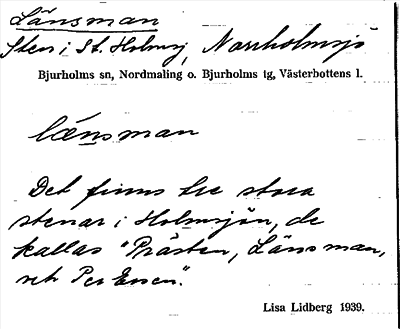 Länsman
Sten i St. Holmsj, Norrholmsjö
Bjurholms sn, Nordmaling o. Bjurholms tg, Västerbottens l.
länsman
Det finns tre stora
stenar i Holmsjön, de
kallas "Prästen, Länsman,
och Per Ersen".
Lisa Lidberg 1939.